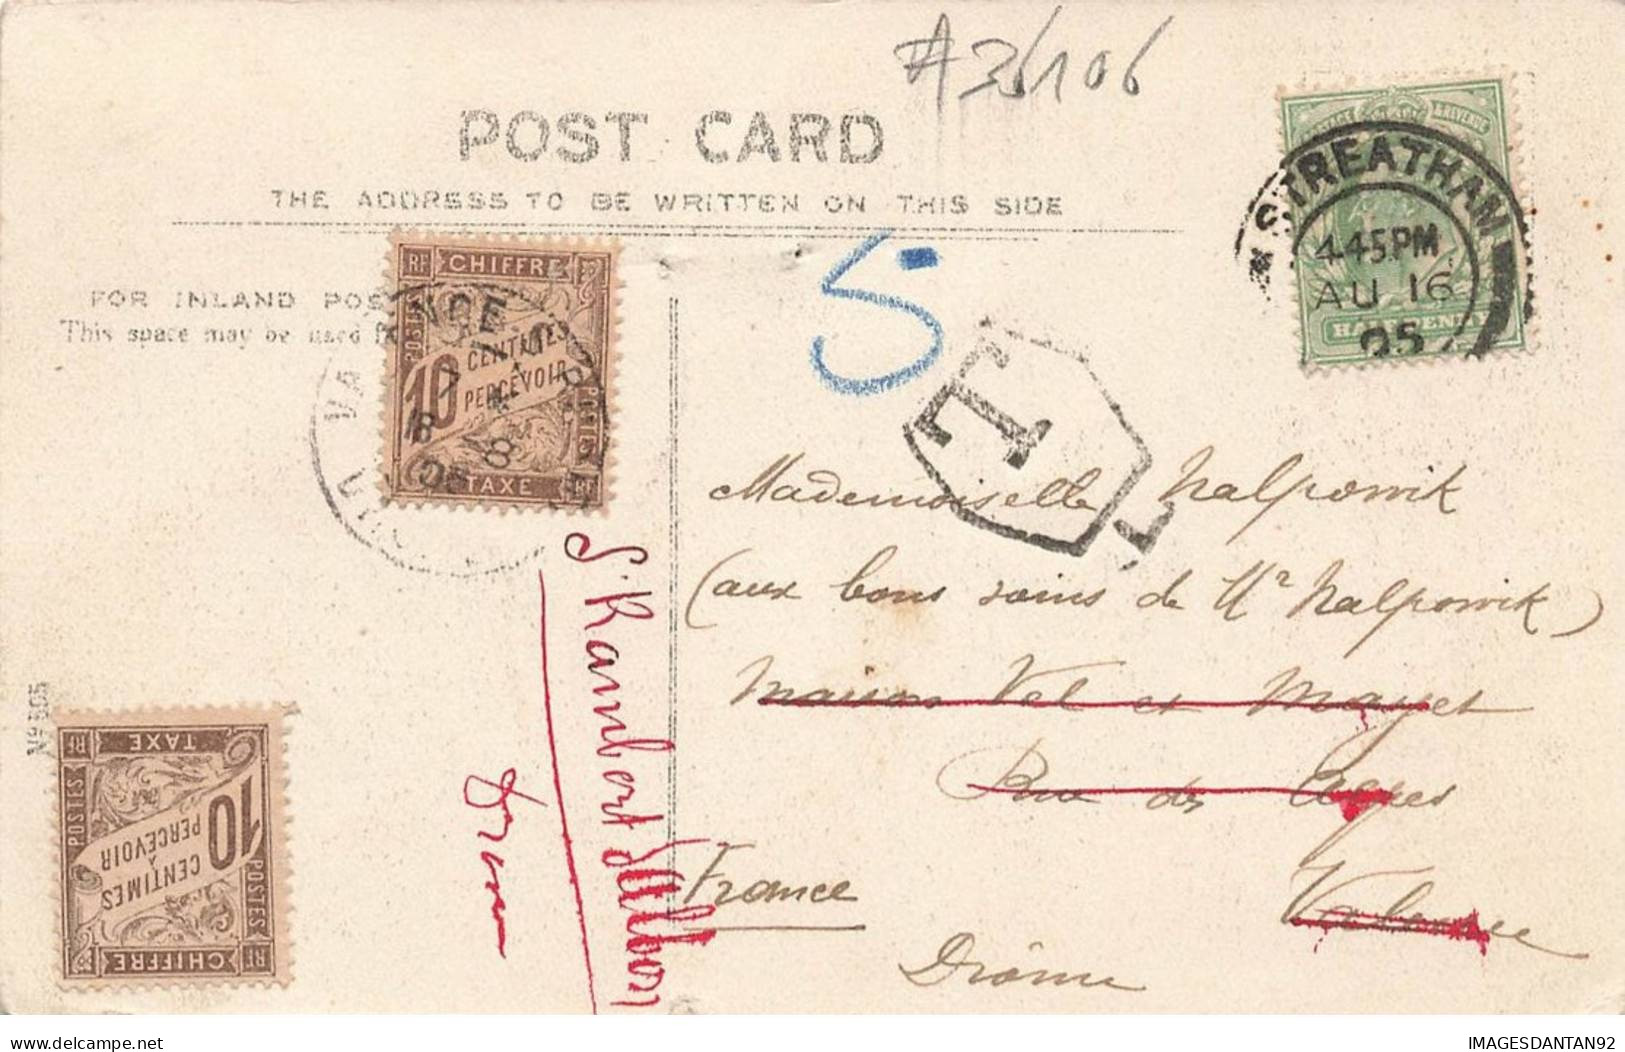 A36106
POST CARD
THE ADDRESS TO BE WRITTEN ON THIS SIDE
POSTAGE & REVENUE
STREATHAM
4.45PM
AU 16
05
HALFPENNY
5
T
L
FOR INLAND POS
This space may be used
RF CHIFFRE
POSTES
10 CENTIMES
À
PERCEVOIR
POSTES
TAXE RF
VALENCE
DROME
17
8
05
Mademoiselle Nalpowik
(aux bons soins de Mr Nalpowik)
Maison Vel et Mayet
Rue des Alpes
Valence
France
Drôme
S. Rambert d'Albon
Drome
No 505
RF TAXE
POSTES
10 CENTIMES
À
PERCEVOIR
POSTES
CHIFFRE RF
IMAGESDANTAN92